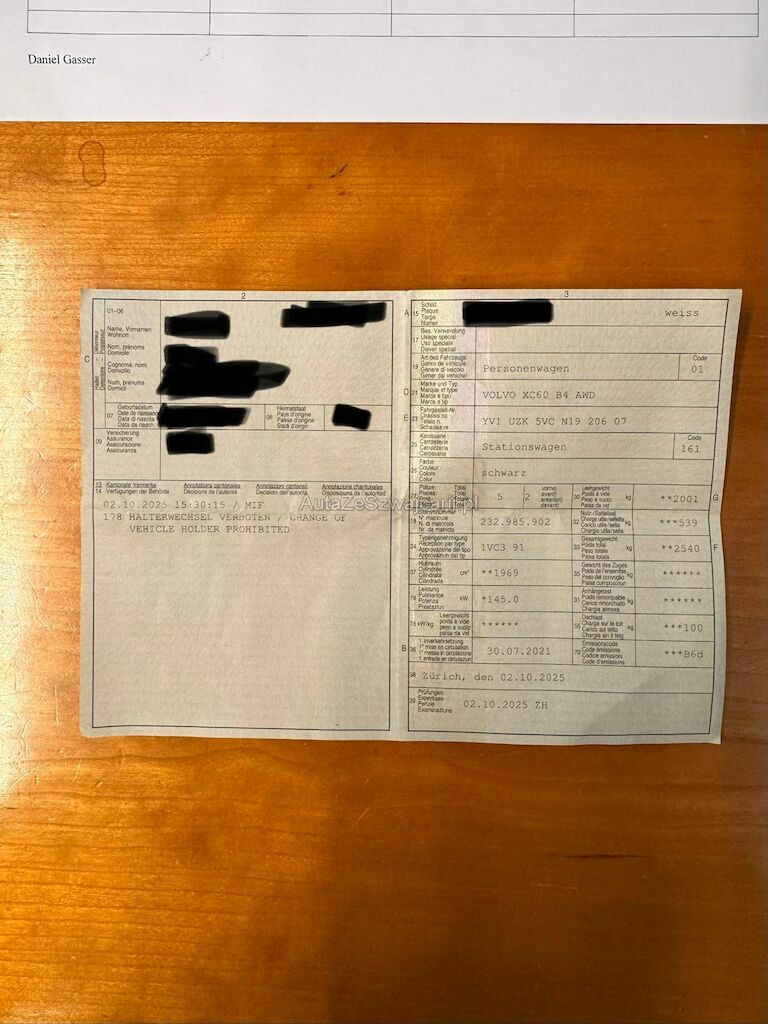 Daniel Gasser
2
01-06
Name, Vornamen
Wohnort
Nom, prénoms
Domicile
Cognome, nomi
Domicilio
Num, prenums
Domicil
C
07
Geburtsdatum
Date de naissance
Data di nascita
Data da nasch.
08
Heimatstaat
Pays d'origine
Paese d'origine
Stadi d'origin
09
Versicherung
Assurance
Assicurazione
Assicuranza
13
14
Kantonale Vermerke
Verfügungen der Behörde
Annotations cantonales
Décisions de l'autorité
Annotazioni cantonali
Decisioni dell'autorità
Annotaziuns chantunalas
Disposiziuns da l'autoritad
02.10.2025 15:30:15 / MIF
178 HALTERWECHSEL VERBOTEN / CHANGE OF
VEHICLE HOLDER PROHIBITED
AutazeSzwajcarii.pl
3
A 15
Schild
Plaque
Targa
Numer
weiss
17
Bes. Verwendung
Usage spécial
Uso speciale
Diever spezial
19
Art des Fahrzeugs
Genre de véhicule
Genere di veicolo
Gener dal vehichel
Personenwagen
Code
01
D 21
Marke und Typ
Marque et type
Marca e tipo
Marca e tip
VOLVO XC60 B4 AWD
E 23
Fahrgestell-Nr.
Châssis no
Telaio n.
Schassis nr.
YV1 UZK 5VC N19 206 07
25
Karosserie
Carrosserie
Carrozzeria
Carossaria
Stationswagen
Code
161
26
Farbe
Couleur
Colore
Colur
schwarz
Plätze Total
Places Total
5
2
vorne
avant
anteriori
davant
30
Leergewicht
Poids à vide
Peso a vuoto
Paisa da vid
kg
**2001
G
18
Stammnummer
N° matricule
N. di matricola
Nr. da matricla
232.985.902
32
Nutz-/Sattellast
Charge utile/sellette
Carico utile/sella
Chargia utila/sella
kg
***539
24
Typengenehmigung
Réception par type
Approvazione del tipo
Approvaziun dal tip
1VC3 91
33
Gesamtgewicht
Poids total
Peso totale
Paisa totala
kg
**2540
F
37
Hubraum
Cylindrée
Cilindrata
Cilindrada
cm³
**1969
35
Gewicht des Zuges
Poids de l'ensemble
Peso del convoglio
Paisa cumposiziun
kg
******
76
Leistung
Puissance
Potenza
Prestaziun
kW
*145.0
31
Anhängelast
Poids remorquable
Carico rimorchiato
Chargia annexa
kg
******
78 kW/kg
Leergewicht
poids à vide
peso a vuoto
paisa da vid
******
55
Dachlast
Charge sur le toit
Carico sul tetto
Chargia sin il tetg
kg
***100
B 36
1. Inverkehrsetzung
1re mise en circulation
1a messa in circolazione
1. entrada en circulaziun
30.07.2021
72
Emissionscode
Code émissions
Codice emissioni
Code d'emissiuns
***B6d
38
Zürich, den 02.10.2025
39
Prüfungen
Expertises
Perizie
Examinaziuns
02.10.2025 ZH